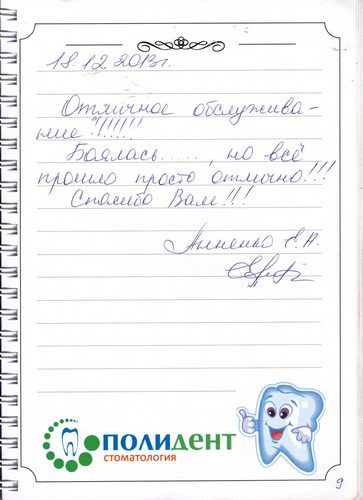 18.12.2013г.
Отличное обслужива-
ние!!!!!!!
Боялась....., но всё
прошло просто отлично!!!
Спасибо Вам!!!
Анненко Е.А.
ПОЛИДЕНТ
СТОМАТОЛОГИЯ
9